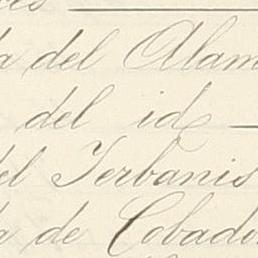 a del Alam
del id
del Jerbanis
a de Cobado